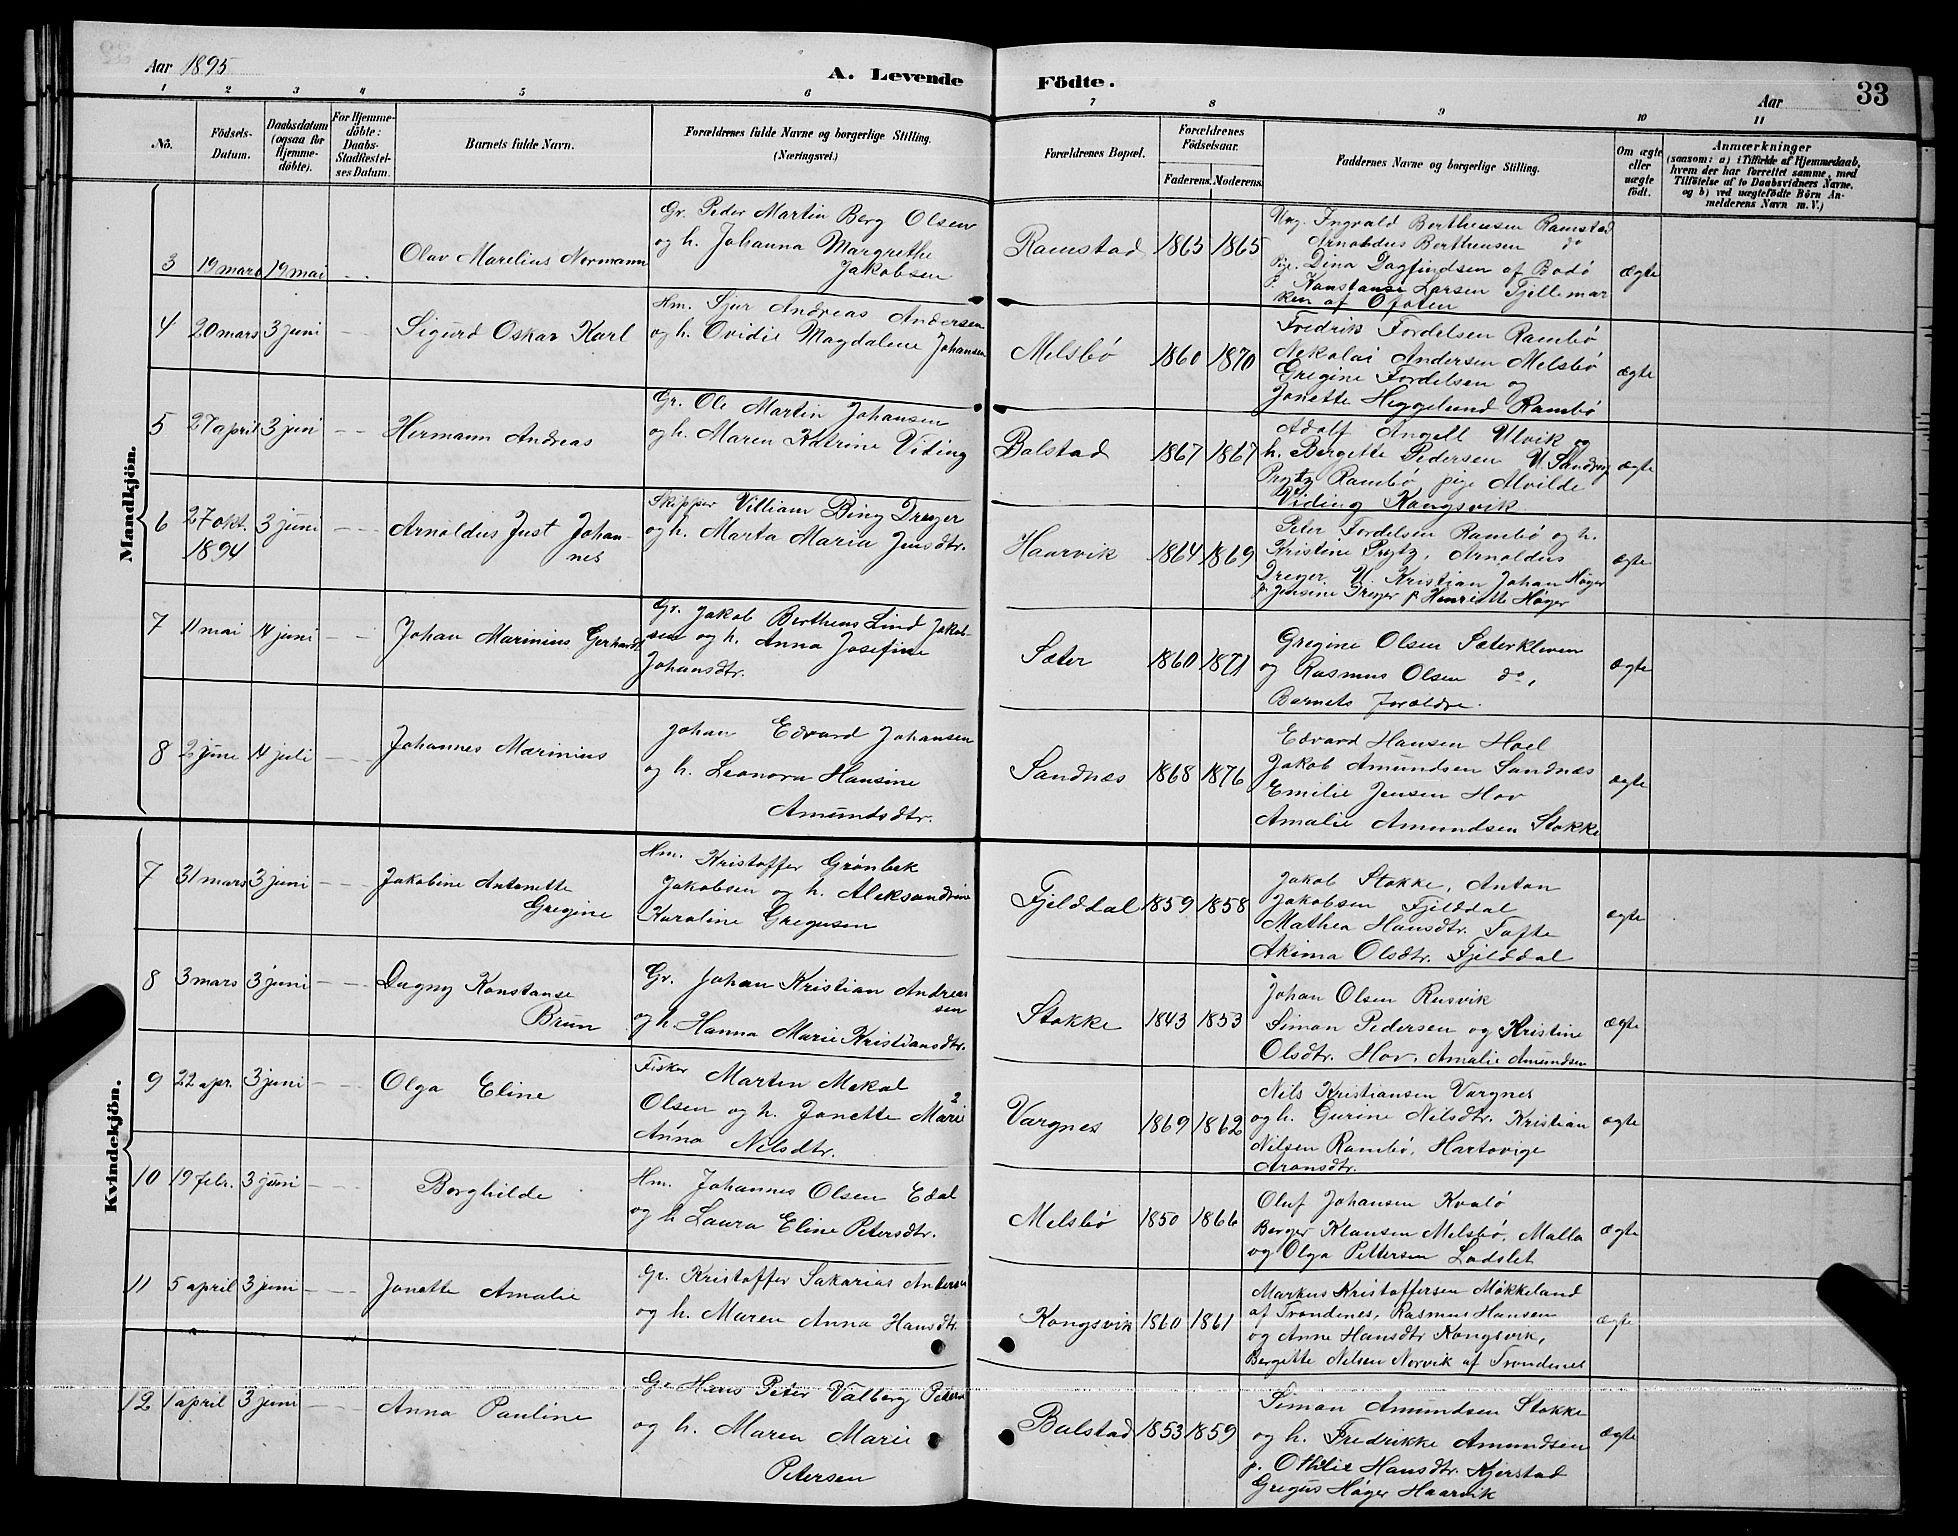 Aar 1895
A. Levende Födte.
Aar
33
1 2 3 4 5 6 7 8 9 10 11
No.
Födsels-Datum.
Daabsdatum (ogsaa for Hjemme-döbte).
For Hjemme-döbte: Daabs-Stadfæstel-ses Datum.
Barnets fulde Navn.
Forældrenes fulde Navne og borgerlige Stilling. (Næringsvei.)
Forældrenes Bopæl.
Forældrenes Födselsaar.
Faderens. Moderens.
Faddernes Navne og borgerlige Stilling.
Om ægte eller uægte födt.
Anmærkninger
(saasom: a) i Tilfælde af Hjemmedaab,
hvem der har forrettet samme, med
Tilföielse af to Daabsvidners Navne,
og b) ved uægtefödte Börn An-
melderens Navn m. V.)
Mandkjön.
3 19 mars 19 mai - - Olav Marelius Normann
Gr. Peder Martin Berg Olsen
og h. Johanna Margrethe
Jakobsen
Ramstad 1865 1865
Ung. Ingvald Berthensen Ramstad
Arnoldus Berthensen do
Pige. Dina Dagfindsen af Bodö
p. Konstanse Larsen Fjellemar
ken af Ofoten
ægte
4 20 mars 3 juni - - Sigurd Oskar Karl
Hm. Sjur Andreas Andersen
og h. Ovidie Magdalene Johansen
Melsbö 1860 1870
Fredrik Fordelsen Rambö
Nekolai Andersen Melsbö
Gregine Fordelsen og
Jonette Heggelund Rambö
ægte
5 27 april 3 juni - - Hermann Andreas
Gr. Ole Martin Johansen
og h. Maren Katrine Viding
Balstad 1867 1867
Adolf Angell Ulvik og
h. Bergette Pedersen U. Sandvig
Prytz Rambö pige Alvilde
Viding Kongsvik
ægte
6 27 okt. 1894 3 juni - - Arnoldus Just Johan-
nes
Skipper Villiam Bing Dreyer
og h. Marta Maria Jensdtr.
Haarvik 1864 1869
Peter Fordelsen Rambö og h.
Kristine Prytz, Arnoldus
Dreyer U. Kristian Johan Høyer
p. Jensine Dreyer p Henriette Høyer
ægte
7 11 mai 4 juni - - Johan Marinius Gerhardt
Gr. Jakob Berthens Lind Jakob-
sen og h. Anna Josefine
Johansdtr.
Sæter 1860 1871
Gregine Olsen Sæterkleven
og Rasmus Olsen do,
Barnets Forældre.
ægte
8 2 june 4 juli - - Johannes Marinius
Johan Edvard Johansen
og h. Leonora Hansine
Amundsdtr.
Sandnæs 1868 1876
Edvard Hansen Hoel
Jakob Amundsen Sandnæs
Emelie Jensen Hov
Amalie Amundsen Stokke
ægte
Kvindekjön.
7 31 mars 3 juni - - Jakobine Antonette
Gregine
Hm. Kristoffer Grönbek
Jakobsen og h. Aleksandrine
Karoline Gregusen
Fjelddal 1859 1858
Jakob Stokke, Anton
Jakobsen Fjelddal
Mathea Hansdtr. Tofte
Akima Olsdtr. Fjelddal
ægte
8 3 mars 3 juni - - Dagny Konstanse
Brun
Gr. Johan Kristian Andreas
sen
og h. Hanna Marie Kristiansdtr.
Stokke 1843 1853
Johan Olsen Rusvik
Simon Pedersen og Kristine
Olsdtr. Hov. Amalie Amundsen
ægte
9 22 apr. 3 juni - - Olga Eline
Fisker Martin Mekal
Olsen og h. Jonette Marie
Anna Nelsdtr.
Vargnes 1869 1862
Nils Kristiansen Vargnes
og h. Gurine Nilsdtr. Kristian
Nilsen Rambö, Hartovige
Aronsdtr.
ægte
10 19 febr. 3 juni - - Borghilde
Hm. Johannes Olsen Edal
og h Laura Eline Petersdtr.
Melsbö 1850 1866
Oluf Johansen Kvalö
Berger Klausen Melsbö. Malla
og Olga Pettersen Ladslet
ægte
11 5 april 3 juni - - Jonette Amalie
Gr. Kristoffer Sakarias Andersen
og h. Maren Anna Hansdtr.
Kongsvik 1860 1861
Markus Kristoffersen Møkkeland
af Trondenes, Rasmus Hansen
og Anne Hansdtr Kongsvik,
Bergette Nelsen Norvik af Trondenes
ægte
12 1 april 3 juni - - Anna Pauline
Gr Hans Peter Valberg Petersen
og h. Maren Marie
Petersen
Balstad 1853 1859
Simon Amundsen Stokke
og h. Fredrikke Amundsen
p. Othilie Hansdtr. Kjerstad
Gregus Høyer Haarvik
ægte